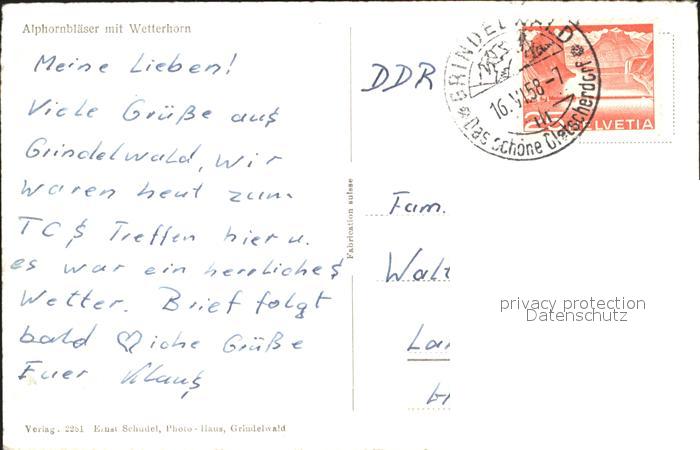 Alphornbläser mit Wetterhorn
Meine Lieben!
Viele Grüße aus
Grindelwald, wir
waren heut zum
TCS Treffen hier u.
es war ein herrliches
Wetter. Brief folgt
bald ♡iche Grüße
Euer Klaus
Verlag. 2251 Ernst Schudel, Photo-Haus, Grindelwald
Fabrication suisse
DDR
GRINDELWALD
16.VI.58-7
Das schöne Gletscherdorf
25 HELVETIA
Fam.
Walt
privacy protection
Datenschutz